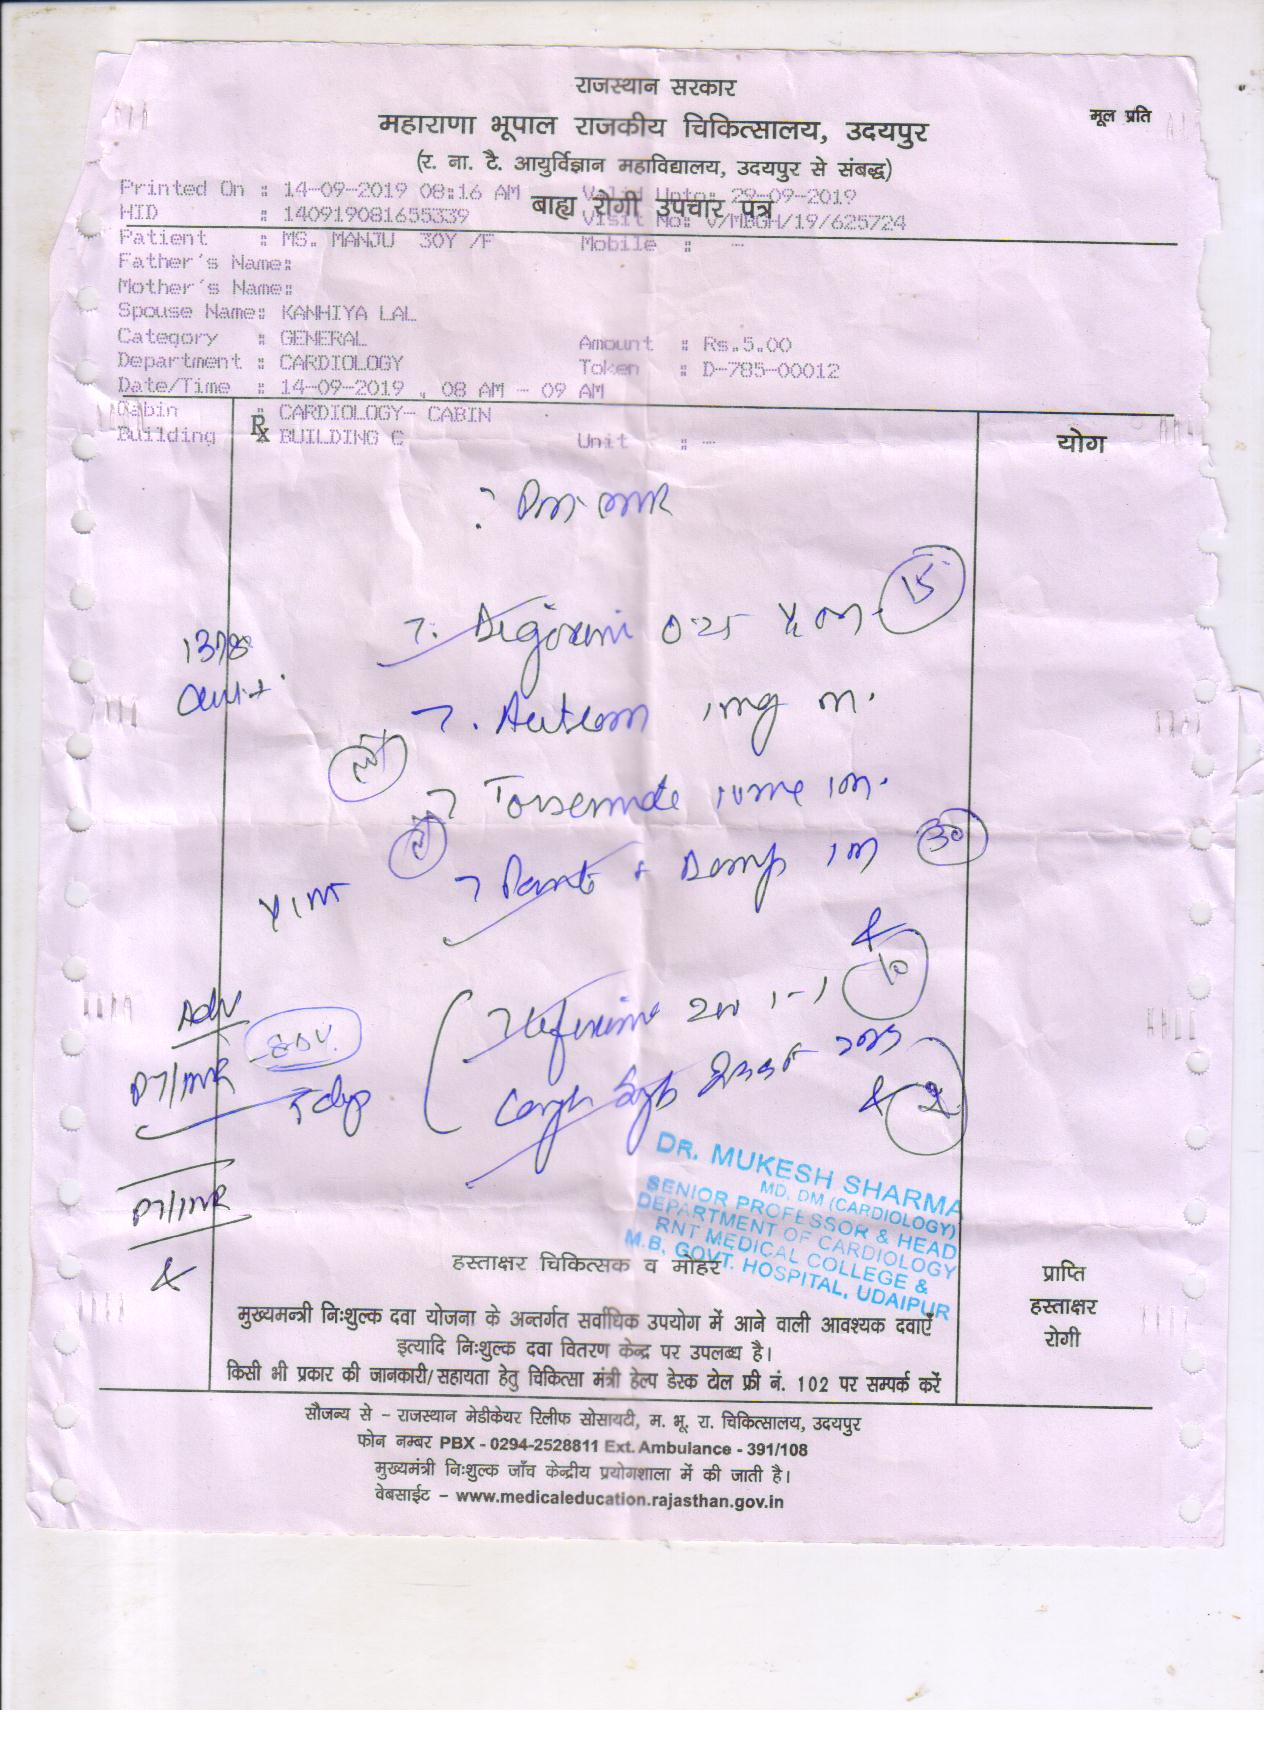 राजस्थान सरकार
मूल प्रति
महाराणा भूपाल राजकीय चिकित्सालय, उदयपुर
(र. ना. टै. आयुर्विज्ञान महाविद्यालय, उदयपुर से संबद्ध)
Printed On : 14-09-2019 08:16 AM Valid Upto: 29-09-2019
बाह्य रोगी उपचार पत्र
HID : 140919081655339 Visit No: V/MBGH/19/625724
Patient : MS. MANJU 30Y /F Mobile : -
Father's Name:
Mother's Name:
Spouse Name: KANHIYA LAL
Category : GENERAL Amount : Rs.5.00
Department : CARDIOLOGY Token : D-785-00012
Date/Time : 14-09-2019 , 08 AM - 09 AM
Cabin : CARDIOLOGY- CABIN
Building : BUILDING C Unit : -
Rx
योग
15
0.25
1mg
Torsemide
30
& Domp
Adv
10
PT/INR
Cough Syp
2
PT/INR
DR. MUKESH SHARMA
MD, DM (CARDIOLOGY)
SENIOR PROFESSOR & HEAD
DEPARTMENT OF CARDIOLOGY
RNT MEDICAL COLLEGE &
M.B. GOVT. HOSPITAL, UDAIPUR
हस्ताक्षर चिकित्सक व मोहर
प्राप्ति
हस्ताक्षर
रोगी
मुख्यमन्त्री निःशुल्क दवा योजना के अन्तर्गत सर्वाधिक उपयोग में आने वाली आवश्यक दवाएँ
इत्यादि निःशुल्क दवा वितरण केन्द्र पर उपलब्ध है।
किसी भी प्रकार की जानकारी/सहायता हेतु चिकित्सा मंत्री हेल्प डेस्क टोल फ्री नं. 102 पर सम्पर्क करें
सौजन्य से - राजस्थान मेडीकेयर रिलीफ सोसायटी, म. भू. रा. चिकित्सालय, उदयपुर
फोन नम्बर PBX - 0294-2528811 Ext. Ambulance - 391/108
मुख्यमंत्री निःशुल्क जाँच केन्द्रीय प्रयोगशाला में की जाती है।
वेबसाईट - www.medicaleducation.rajasthan.gov.in